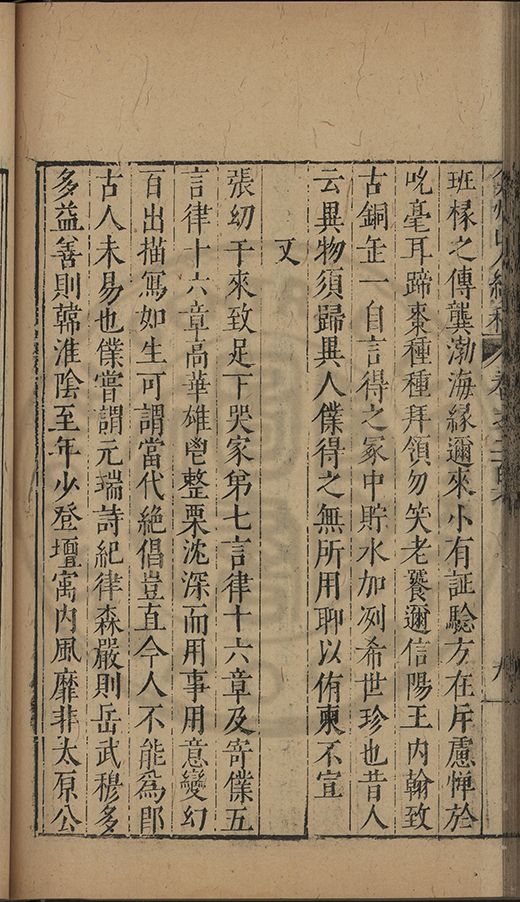 弇州山人續稿 卷之二百
九
班椽之傳龔渤海緣邇來小有証驗方在斥慮憚於
吮毫耳蹄棗種種拜領勿笑老饕邇信陽王内翰致
古銅缶一自言得之冢中貯水加冽希世珍也昔人
云異物須歸異人僕得之無所用聊以侑柬不宣
又
張幼于來致足下哭家弟七言律十六章及寄僕五
言律十六章高華雄鬯整栗沈深而用事用意變幻
百出描寫如生可謂當代絶倡豈直今人不能為即
古人未易也僕嘗謂元瑞詩紀律森嚴則岳武穆多
多益善則韓淮陰至年少登壇寓内風靡非太原公